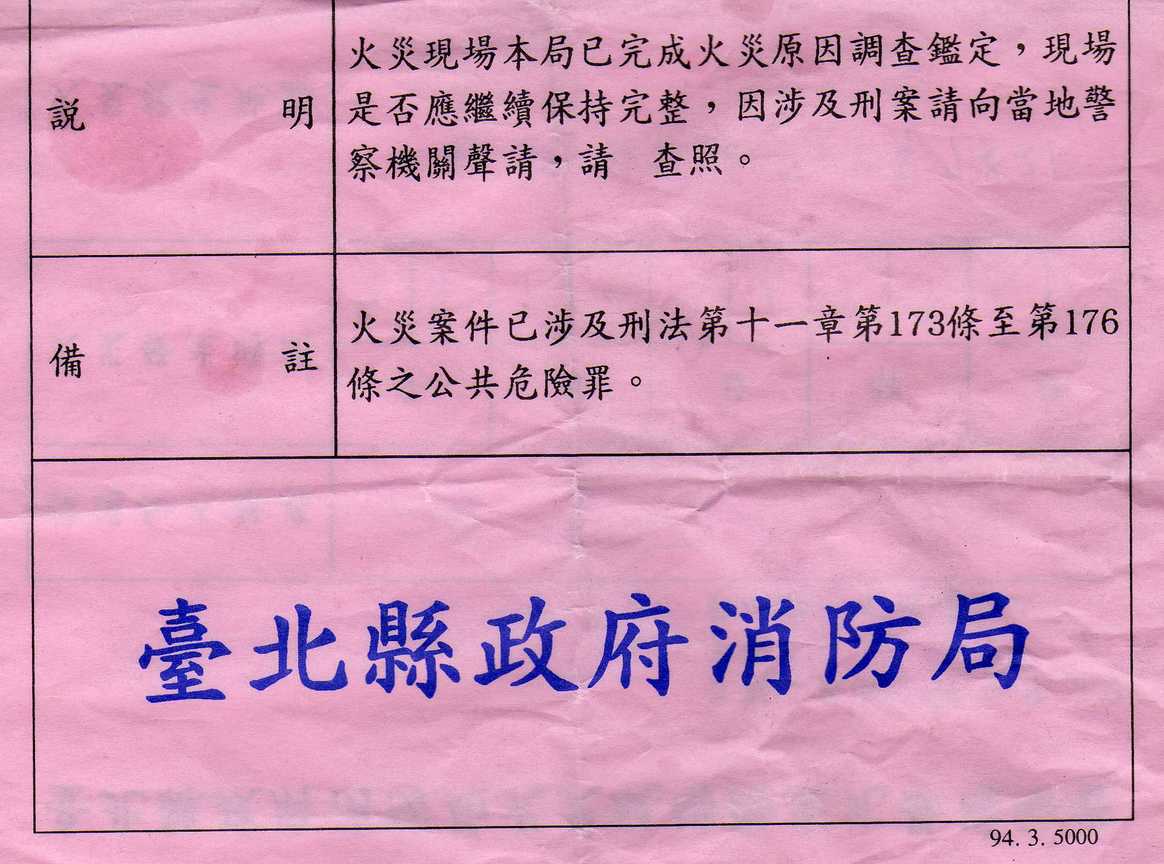 說明
火災現場本局已完成火災原因調查鑑定，現場
是否應繼續保持完整，因涉及刑案請向當地警
察機關聲請，請　查照。
備註
火災案件已涉及刑法第十一章第173條至第176
條之公共危險罪。
臺北縣政府消防局
94. 3. 5000